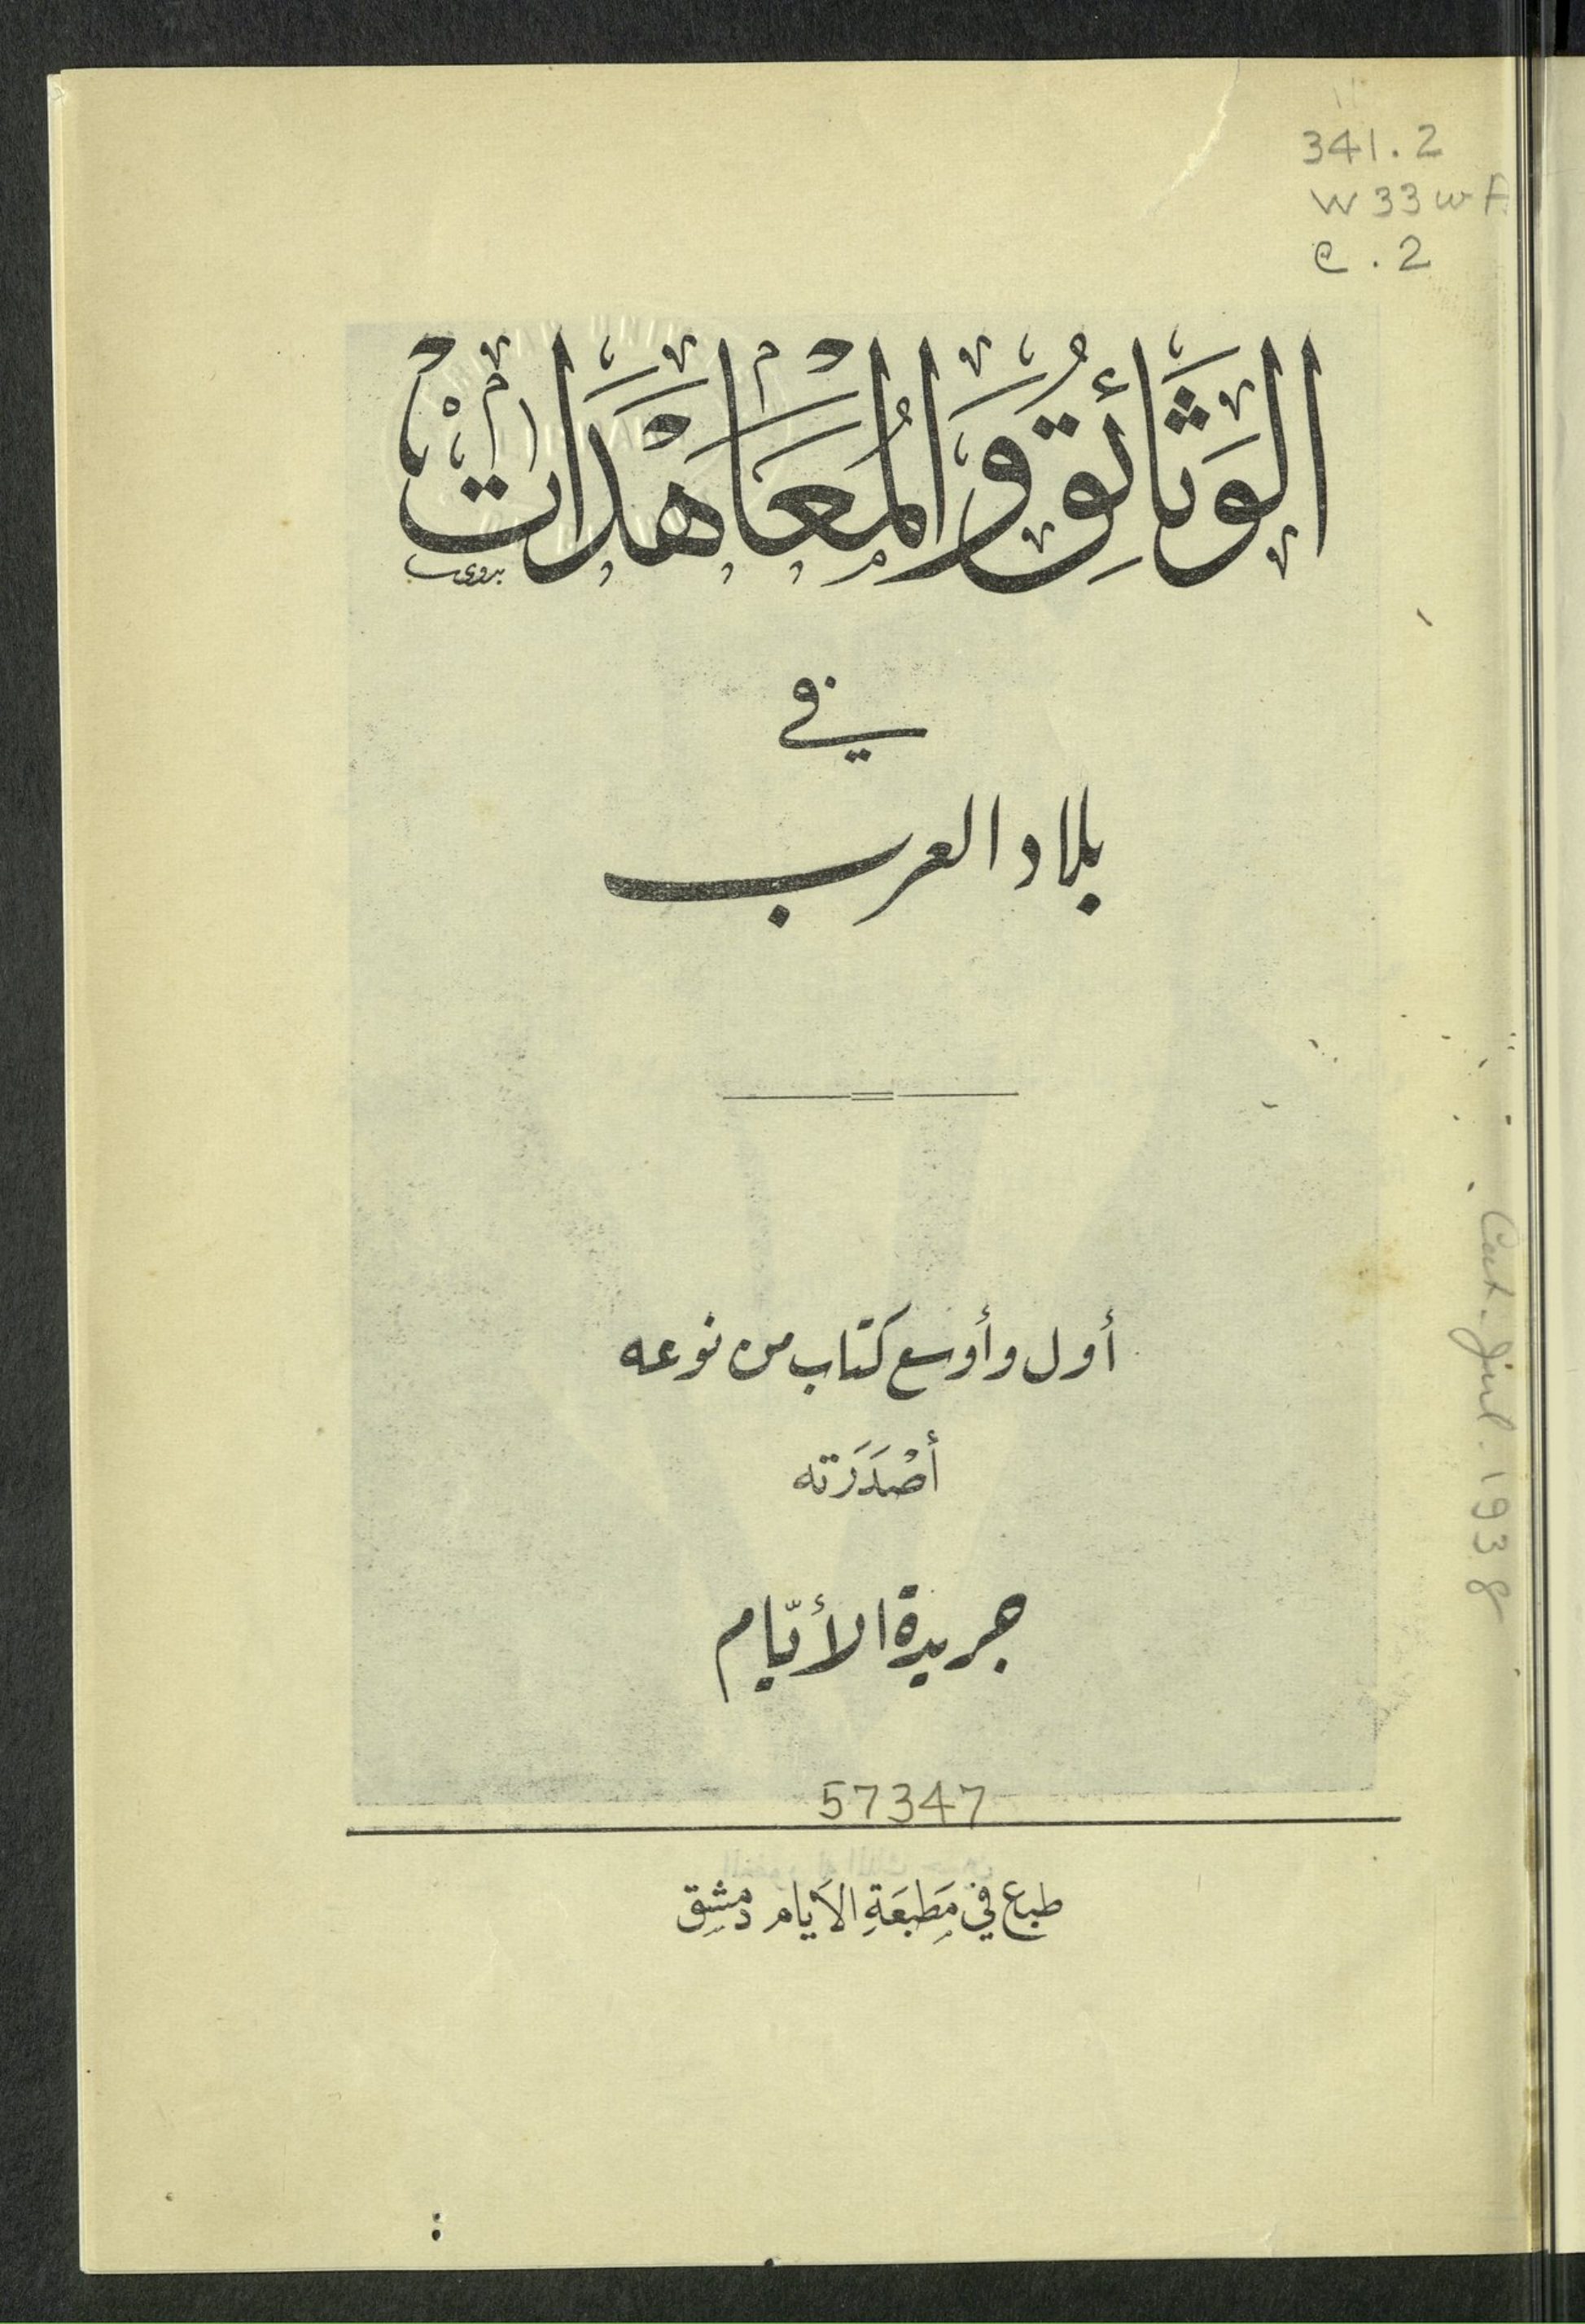 341.2
W33wA
c.2
الوَثَائِقُ وَالمُعَاهَدَاتْ
بدوي
في
بلاد العرب
أول وأوسع كتاب من نوعه
أصْدَرَته
جريدة الأيّام
57347
طبع في مَطبَعَةِ الأيام دمشِق
Cat. Jul. 1938